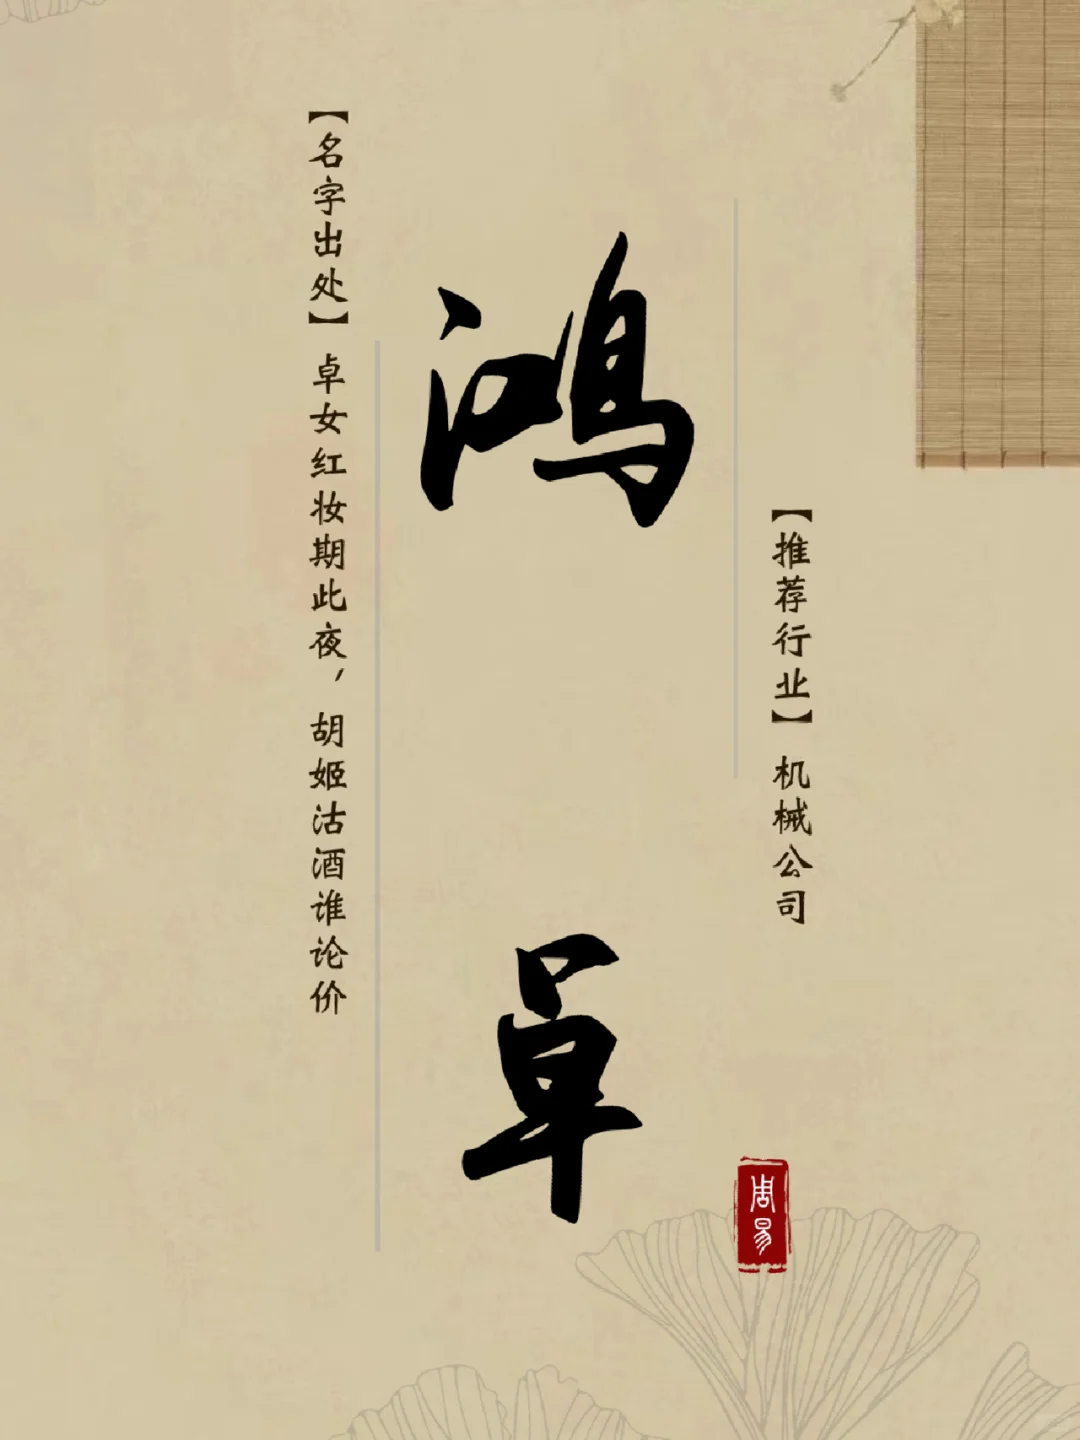 【推荐行业】机械公司
鸿卓
【名字出处】卓女红妆期此夜，胡姬沽酒谁论价
周易